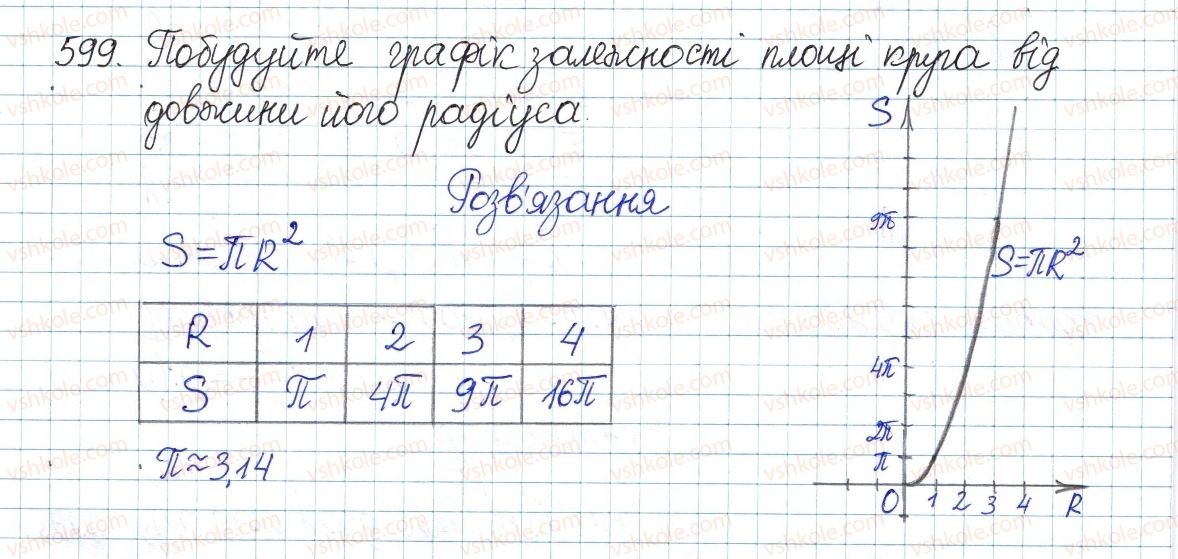 599. Побудуйте графік залежності площі круга від
довжини його радіуса.
Розв'язання
S=πR²
R 1 2 3 4
S π 4π 9π 16π
π≈3,14
S
9π
S=πR²
4π
2π
π
0 1 2 3 4 R